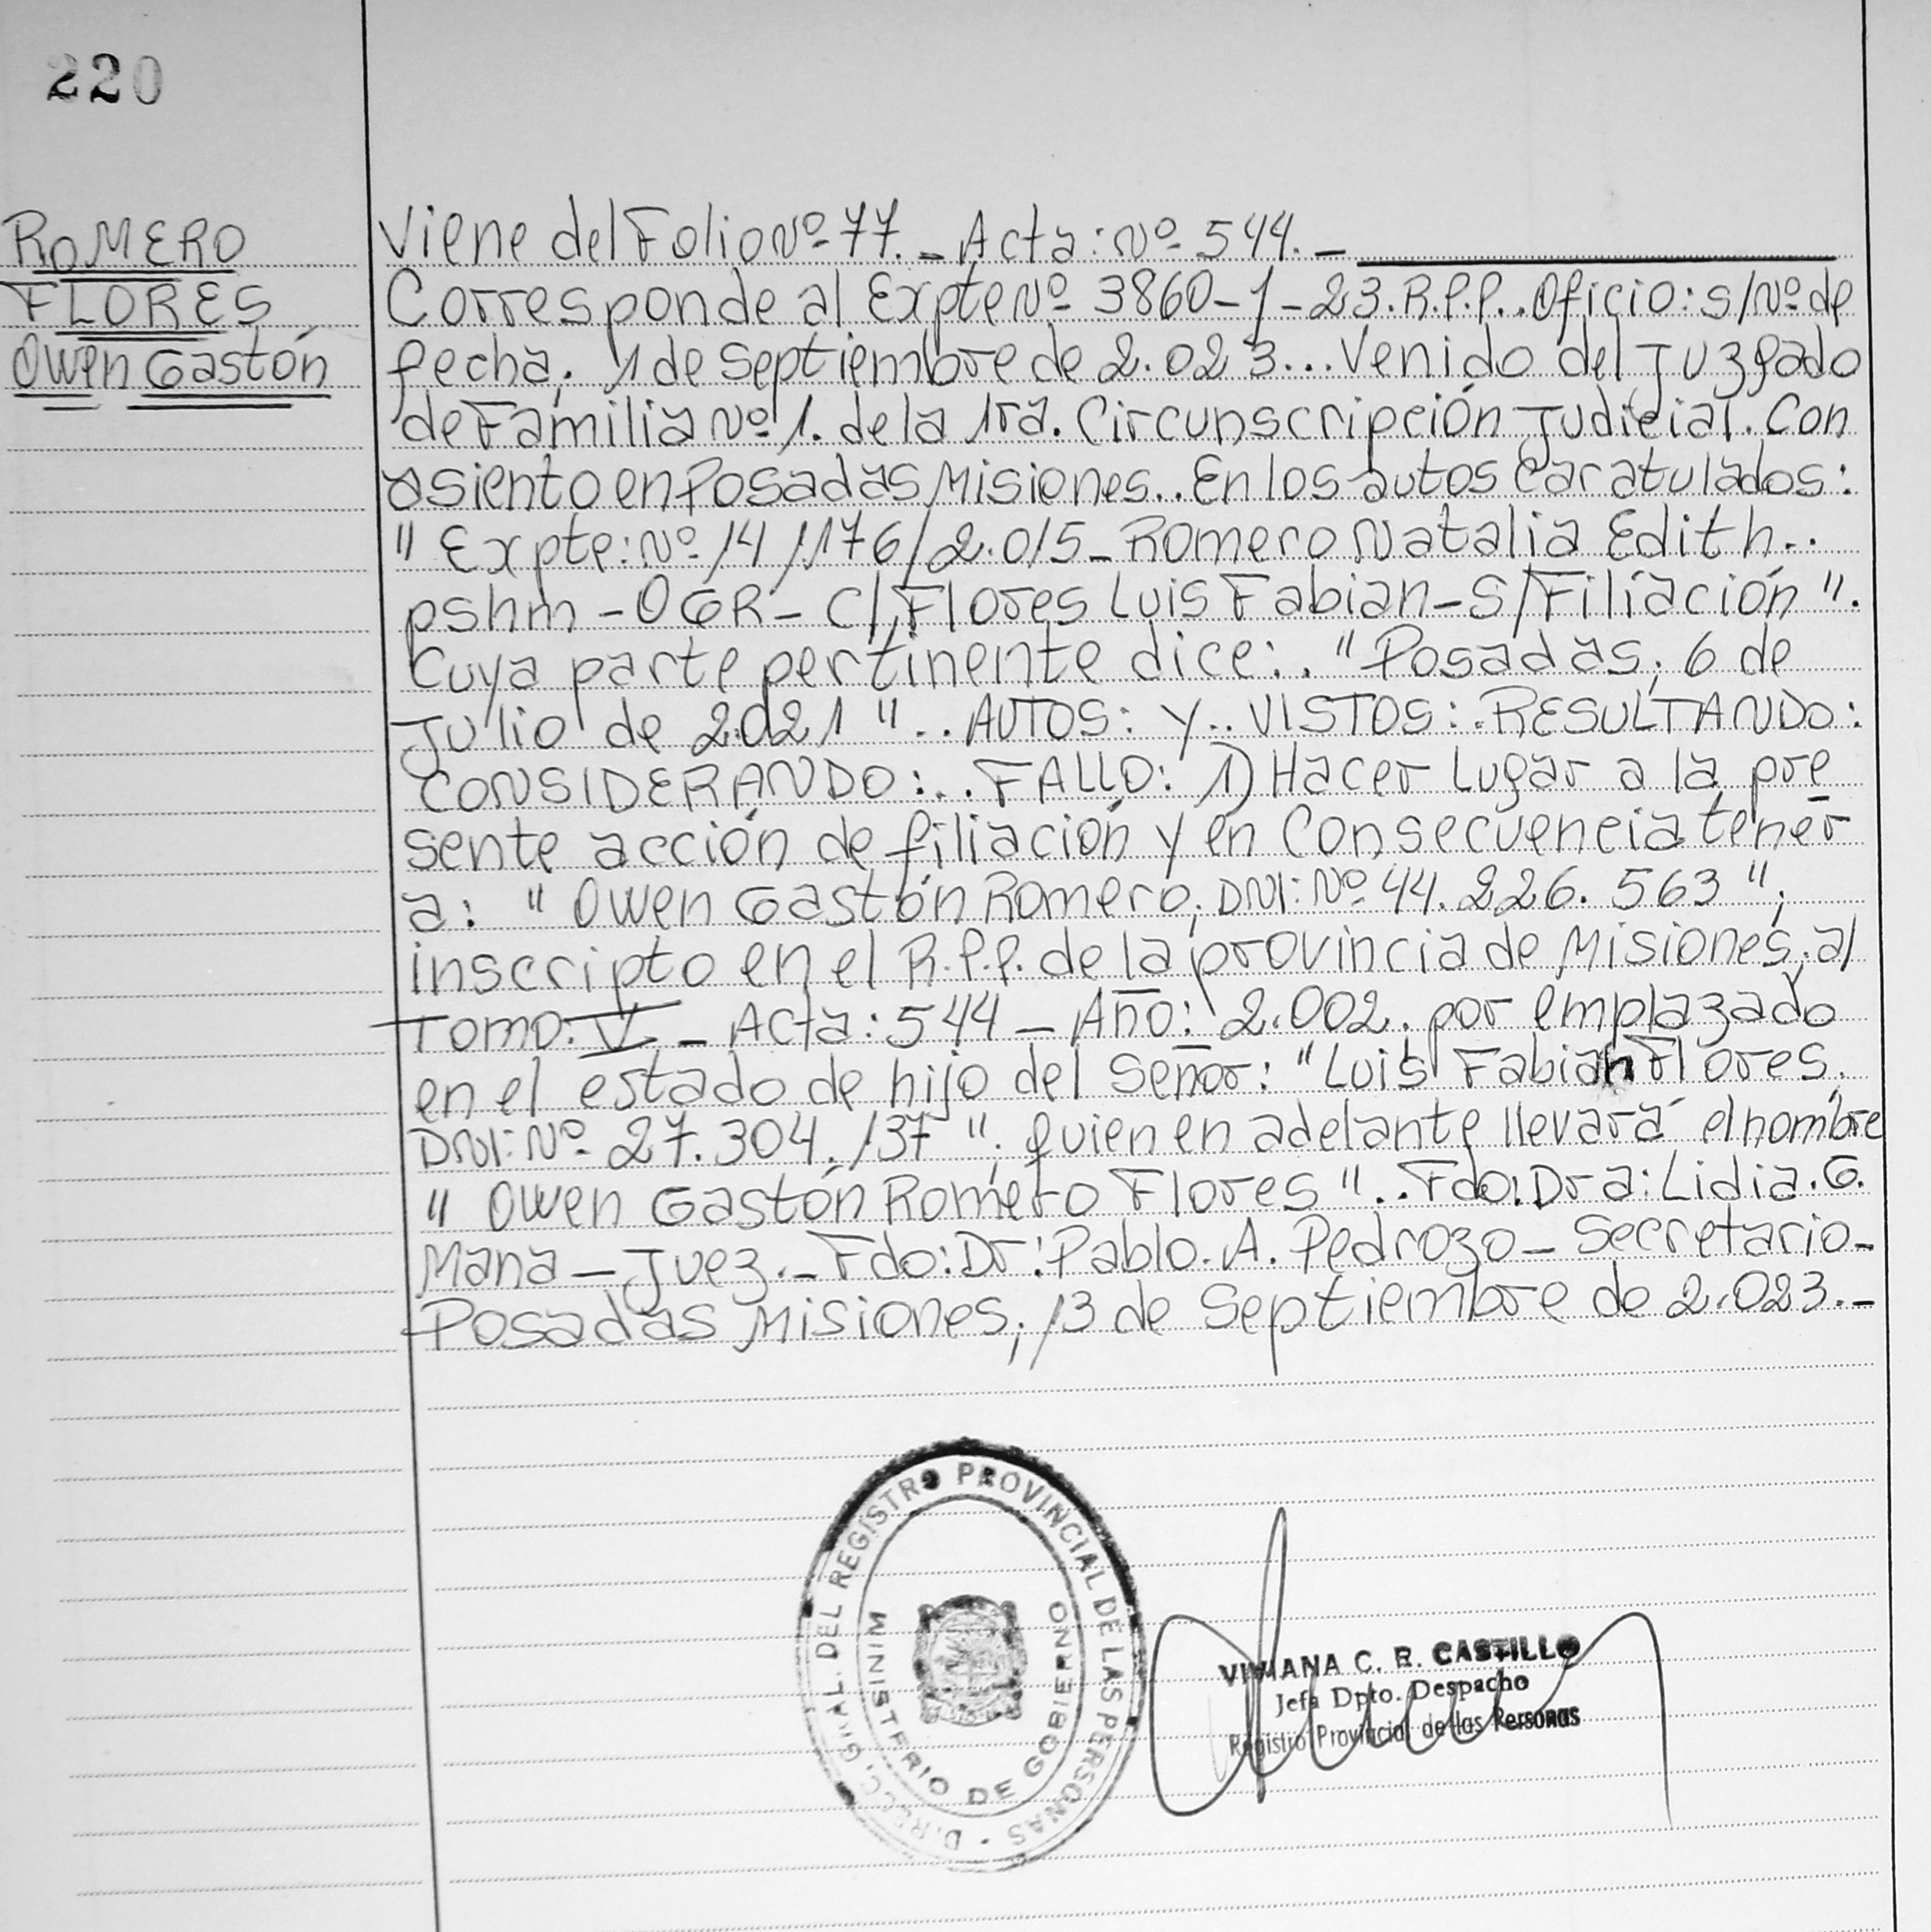 220
ROMERO
FLORES
Owen Gastón
Viene del Folio Nº 77. - Acta: Nº 544. -
Corresponde al Expte Nº 3860-1-23. R.P.P.. Oficio: S/Nº de
fecha; 1 de Septiembre de 2.023... Venido del Juzgado
de Familia Nº 1. de la 1ra. Circunscripción Judicial. Con
asiento en Posadas Misiones.. En los autos Caratulados:
" Expte: Nº 141176/2.015 - Romero Natalia Edith..
pshm - OGR - C/ Flores Luis Fabian - S/ Filiación ".
Cuya parte pertinente dice:. "Posadas; 6 de
Julio de 2.021 ".. AUTOS: Y.. VISTOS:. RESULTANDO:
CONSIDERANDO:.. FALLO: 1) Hacer Lugar a la pre
sente acción de filiación y en Consecuencia tener
a: " Owen Gastón Romero; DNI: Nº 44.226.563 ";
inscripto en el R.P.P. de la provincia de Misiones; al
Tomo: V - Acta: 544 - Año: 2.002. por emplazado
en el estado de hijo del Señor: "Luis Fabian Flores;
DNI: Nº 27.304.137 "; quien en adelante llevará el nombre
" Owen Gastón Romero Flores ".. Fdo: Dra: Lidia. G.
Mana - Juez. - Fdo: Dr: Pablo. A. Pedrozo - Secretario -
Posadas Misiones; 13 de Septiembre de 2.023. -
DEL REGISTRO PROVINCIAL DE LAS PERSONAS
MINISTERIO DE GOBIERNO
VIVIANA C. R. CASTILLO
Jefa Dpto. Despacho
Registro Provincial de las Personas